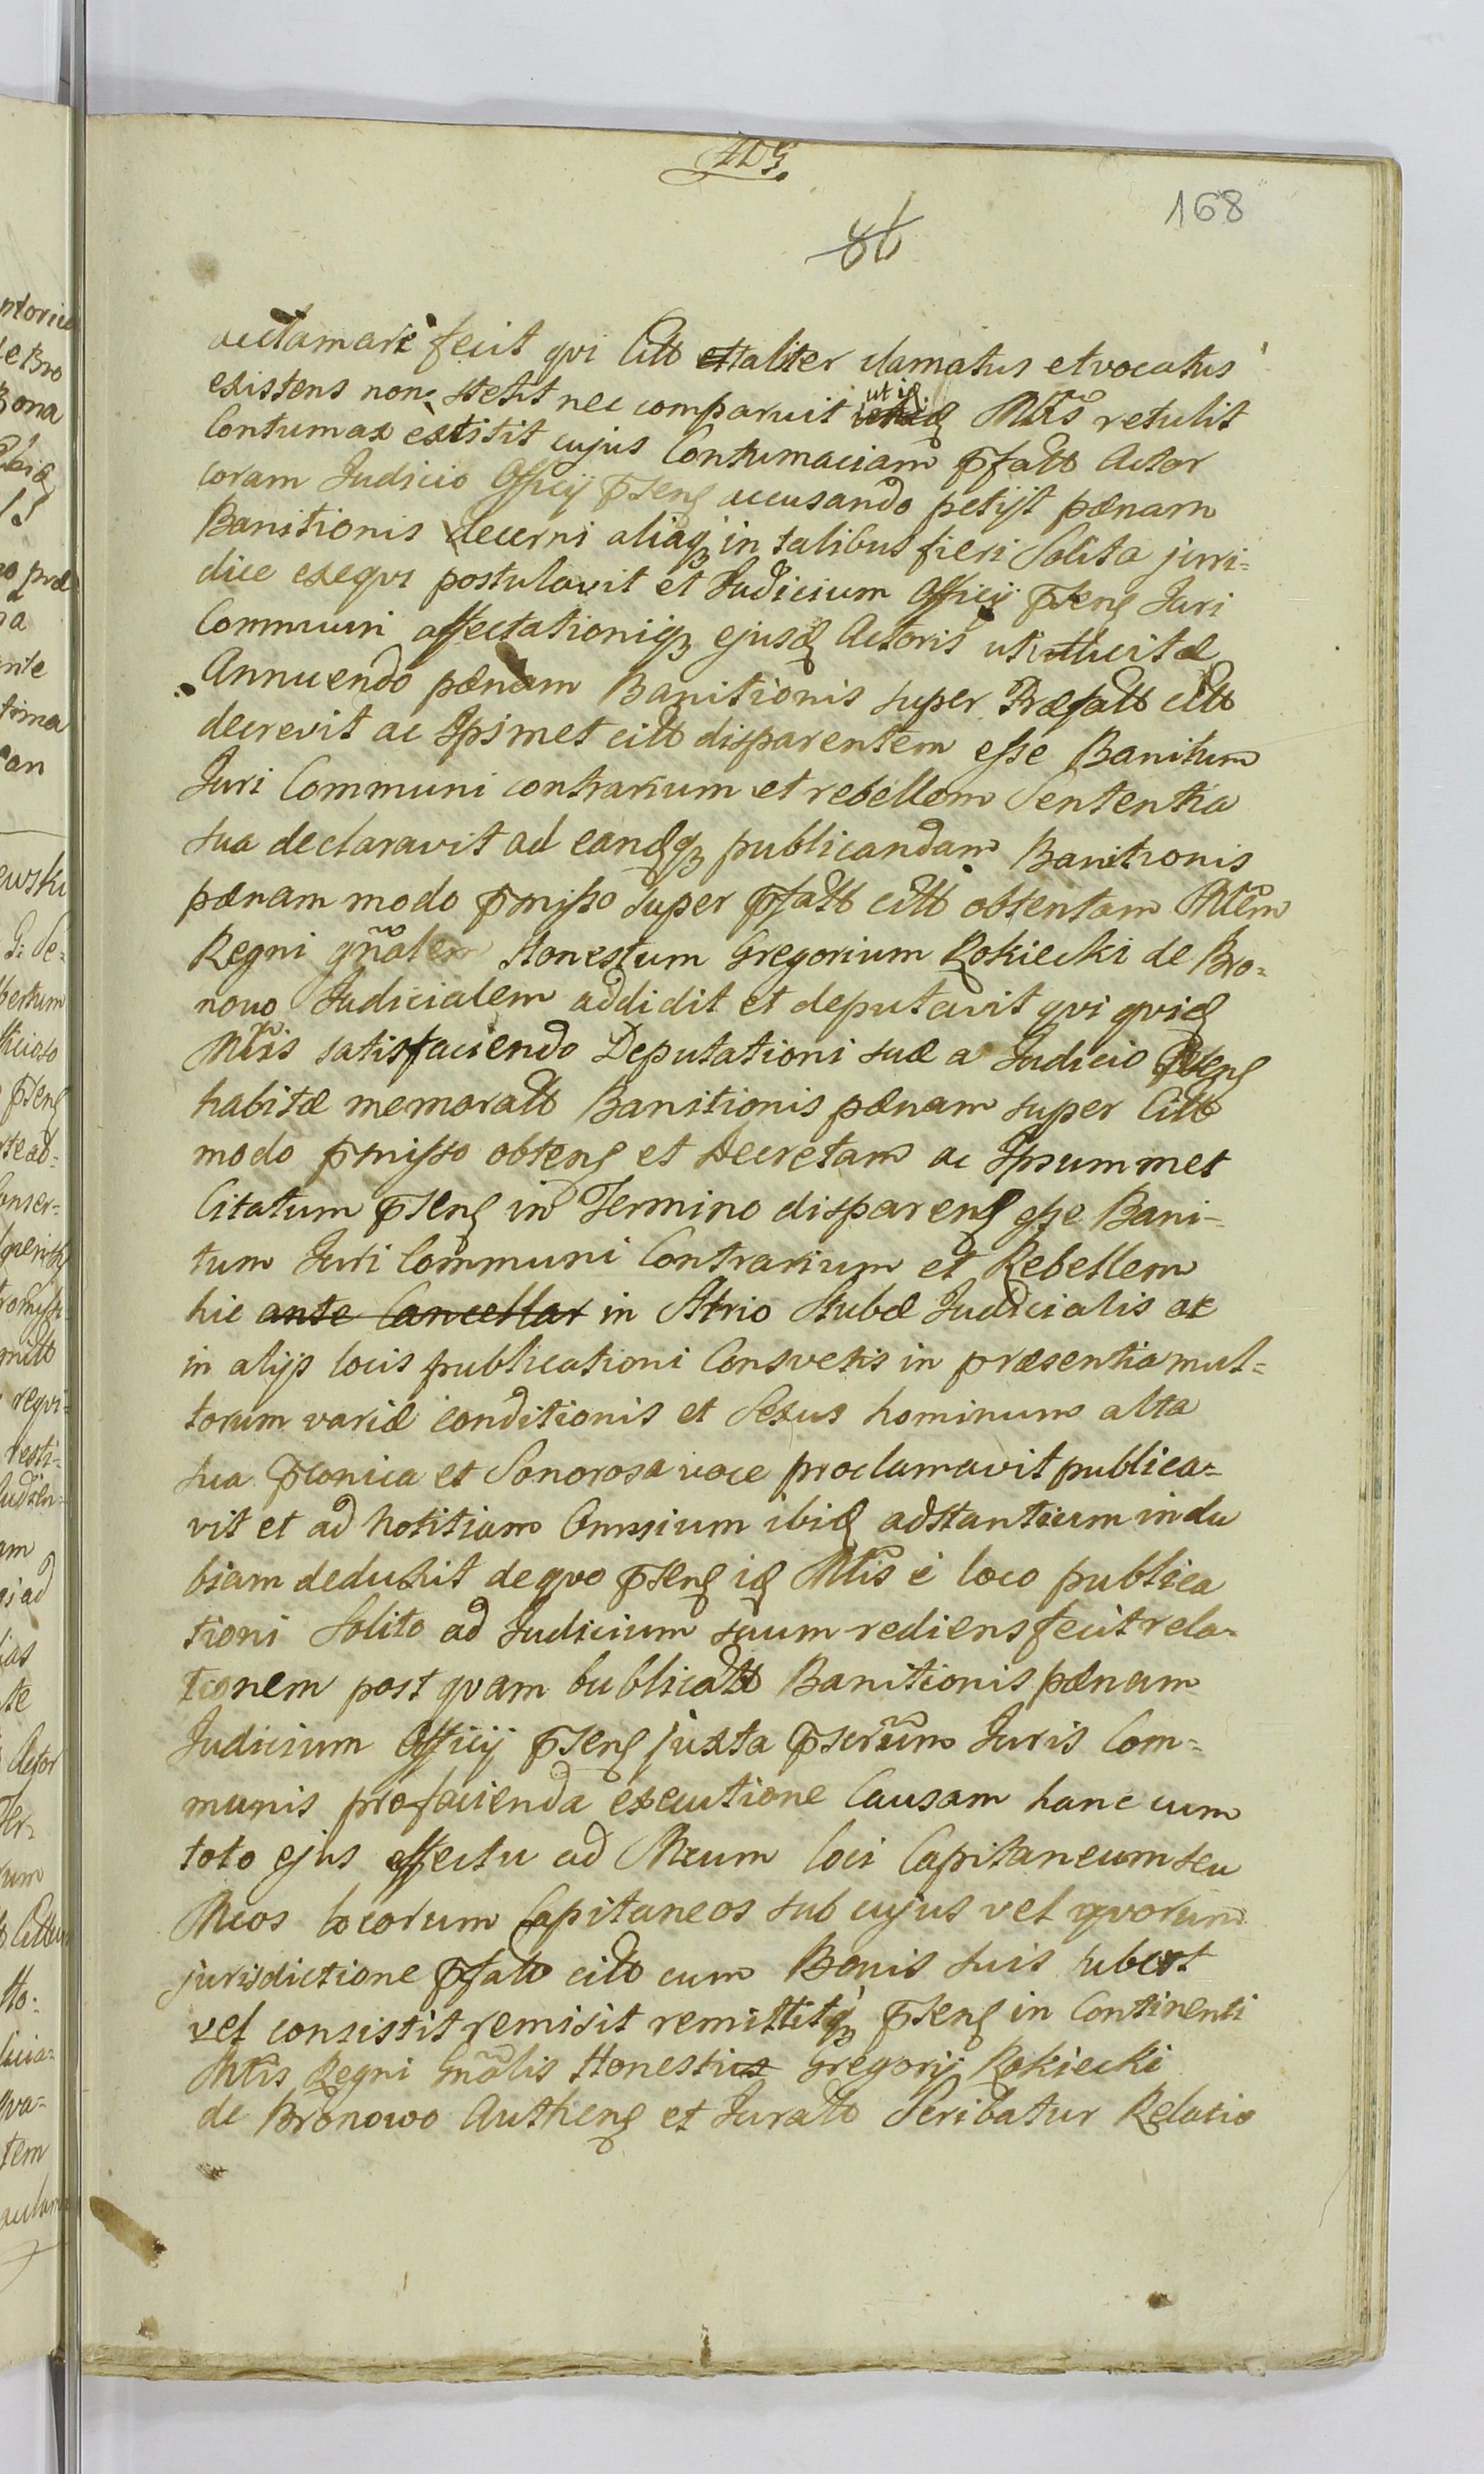 168
86
acclamari fecit qvi Citt et taliter clamatus et vocatus
existens non stetit nec comparuit ut id Mtris retulit
Contumax extitit cujus Contumaciam pfatt Actor
coram Judicio Officij psens accusando petijt pænam
Banitionis decerni aliaq in talibus fieri Solita juri=
dice exeqvi postulavit et Judicium Officij psens Juri
Communi affectationiq ejusd Actoris uti licitæ
Annuendo pænam Banitionis super Præfatt citt
decrevit ac Ipsmet citt disparentem esse Banitum
Juri Communi contrarium et rebellem Sententia
sua declaravit ad eandq publicandam Banitionis
pænam modo pmisso super pfatt citt obtentam Mtrem
Regni gnalem Honestum Gregorium Rokiecki de Bro=
nowo Judicialem addidit et deputavit qvi qvid
Mtris satisfaciendo Deputationi suæ a Judicio psens
habitæ memoratt Banitionis pænam super Citt
modo pmisso obtens et Decretam ac Ipsummet
Citatum psens in Termino disparens esse Bani=
tum Juri Communi Contrarium et Rebellem
hic ante Cancellar in Atrio Stubæ Judicialis ac
in alijs locis publicationi Consvetis in præsentia mul=
torum variæ conditionis et Sexus hominum alta
sua pconica et Sonorosa voce proclamavit publica=
vit et ad Notitiam Omnium ibid adstantium indu
biam deduxit de qvo psens id Mtris è loco publica
tioni Solito ad Judicium suum rediens fecit rela=
tionem post qvam bublicatt Banitionis pænam
Judicium Officij psens juxta pscrtum Juris Com=
munis pro facienda executione Causam hanc cum
toto ejus effectu ad Mcum loci Capitaneum seu
Mcos locorum Capitaneos sub cujus vel qvorum
jurisdictione pfatt citt cum Bonis suis subest
vel consistit remisit remittitq psens in Continenti
Mtris Regni Gnalis Honesti Gregorij Rokiecki
de Bronowo Authens et Juratt Scribatur Relatio